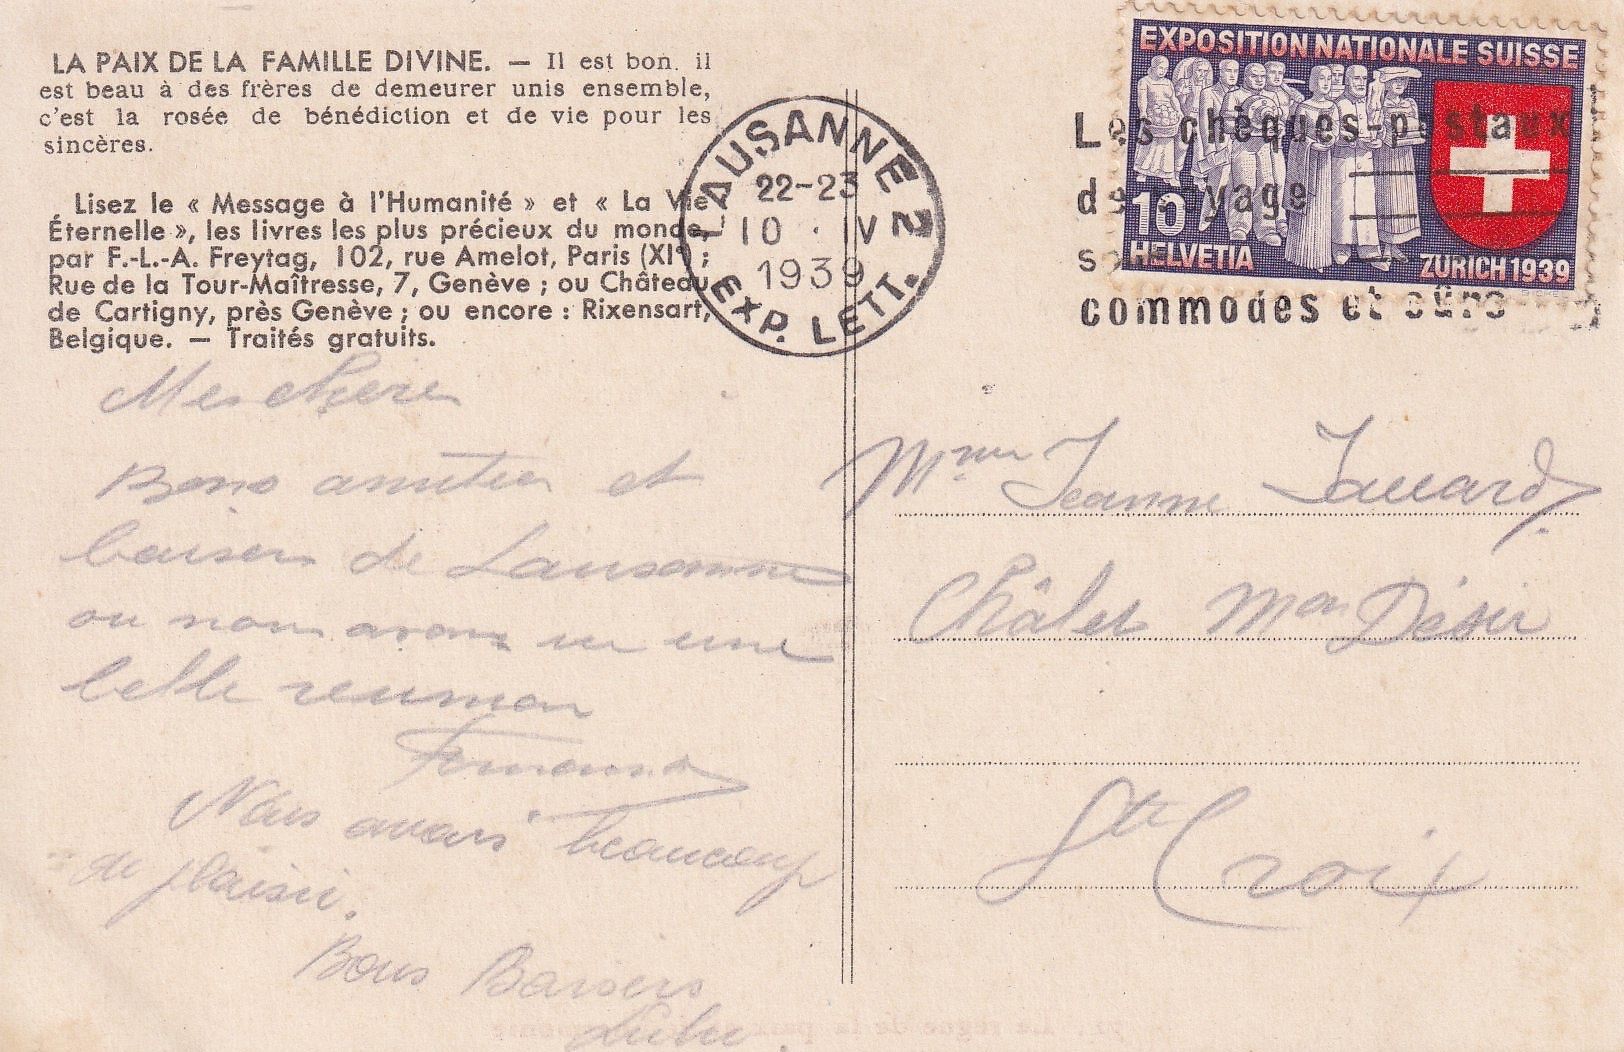 LA PAIX DE LA FAMILLE DIVINE. — Il est bon. il
est beau à des frères de demeurer unis ensemble,
c'est la rosée de bénédiction et de vie pour les
sincères.
Lisez le « Message à l'Humanité » et « La Vie
Éternelle », les livres les plus précieux du monde,
par F.-L.-A. Freytag, 102, rue Amelot, Paris (XIe) ;
Rue de la Tour-Maîtresse, 7, Genève ; ou Château
de Cartigny, près Genève ; ou encore : Rixensart,
Belgique. — Traités gratuits.
Mes chères
Bons amitiés et
baisers de Lausanne
ou nous avons eu une
belle reunion
Nous avons beaucoup
de plaisir.
Bons Baisers
Lulu.
LAUSANNE 2
22-23
10 · V
1939
EXP. LETT.
EXPOSITION NATIONALE SUISSE
10
HELVETIA
ZÜRICH 1939
Les chèques-postaux
de voyage
commodes et sûrs
Mme Jeanne
Châlet Mon Désir
Ste Croix